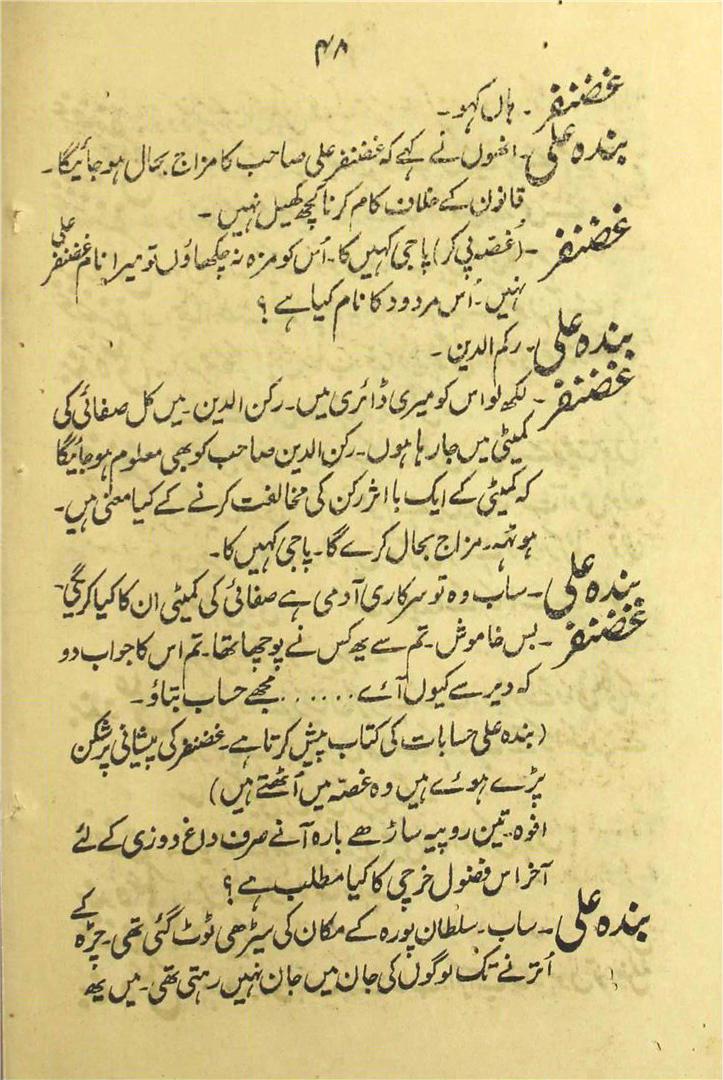 ۴۸
غضنفر ۔ ہاں کہو ۔
بندہ علی ۔ انھوں نے کہے کہ غضنفر علی صاحب کا مزاج بحال ہوجائیگا ۔
قانون کے خلاف کام کرنا کچھ کھیل نہیں ۔
غضنفر ۔ (غصّہ پی کر) پاجی کہیں کا ۔ اُس کو مزہ نہ چکھاؤں تو میرا نام غضنفر علی
نہیں ۔ اُس مردود کا نام کیا ہے ؟
بندہ علی ۔ رکم الدین ۔
غضنفر ۔ لکھ لو اس کو میری ڈائری میں ۔ رکن الدین ۔ میں کل صفائی کی
کمیٹی میں جارہا ہوں ۔ رکن الدین صاحب کو بھی معلوم ہوجائیگا
کہ کمیٹی کے ایک با اثر رکن کی مخالفت کرنے کے کیا معنی ہیں ۔
ہونہہ ۔ مزاج بحال کرے گا ۔ پاجی کہیں کا ۔
بندہ علی ۔ ساب وہ تو سرکاری آدمی ہے صفائی کی کمیٹی ان کا کیا کریگی ۔
غضنفر ۔ بس خاموش ۔ تم سے یھ کس نے پوچھا تھا ۔ تم اس کا جواب دو
کہ دیر سے کیوں آئے ...... مجھے حساب بتاؤ ۔
(بندہ علی حسابات کی کتاب پیش کرتا ہے ۔ غضنفر کی پیشانی پر شکن
پڑے ہوئے ہیں وہ غصّہ میں اُٹھتے ہیں)
افوہ ۔ تین روپیہ ساڑھے بارہ آنے صرف داغ دوزی کے لئے
آخر اس فضول خرچی کا کیا مطلب ہے ؟
بندہ علی ۔ ساب ۔ سلطان پورہ کے مکان کی سیڑھی ٹوٹ گئی تھی ۔ چڑہ کے
اُترنے تک لوگوں کی جان میں جان نہیں رہتی تھی ۔ میں یھ